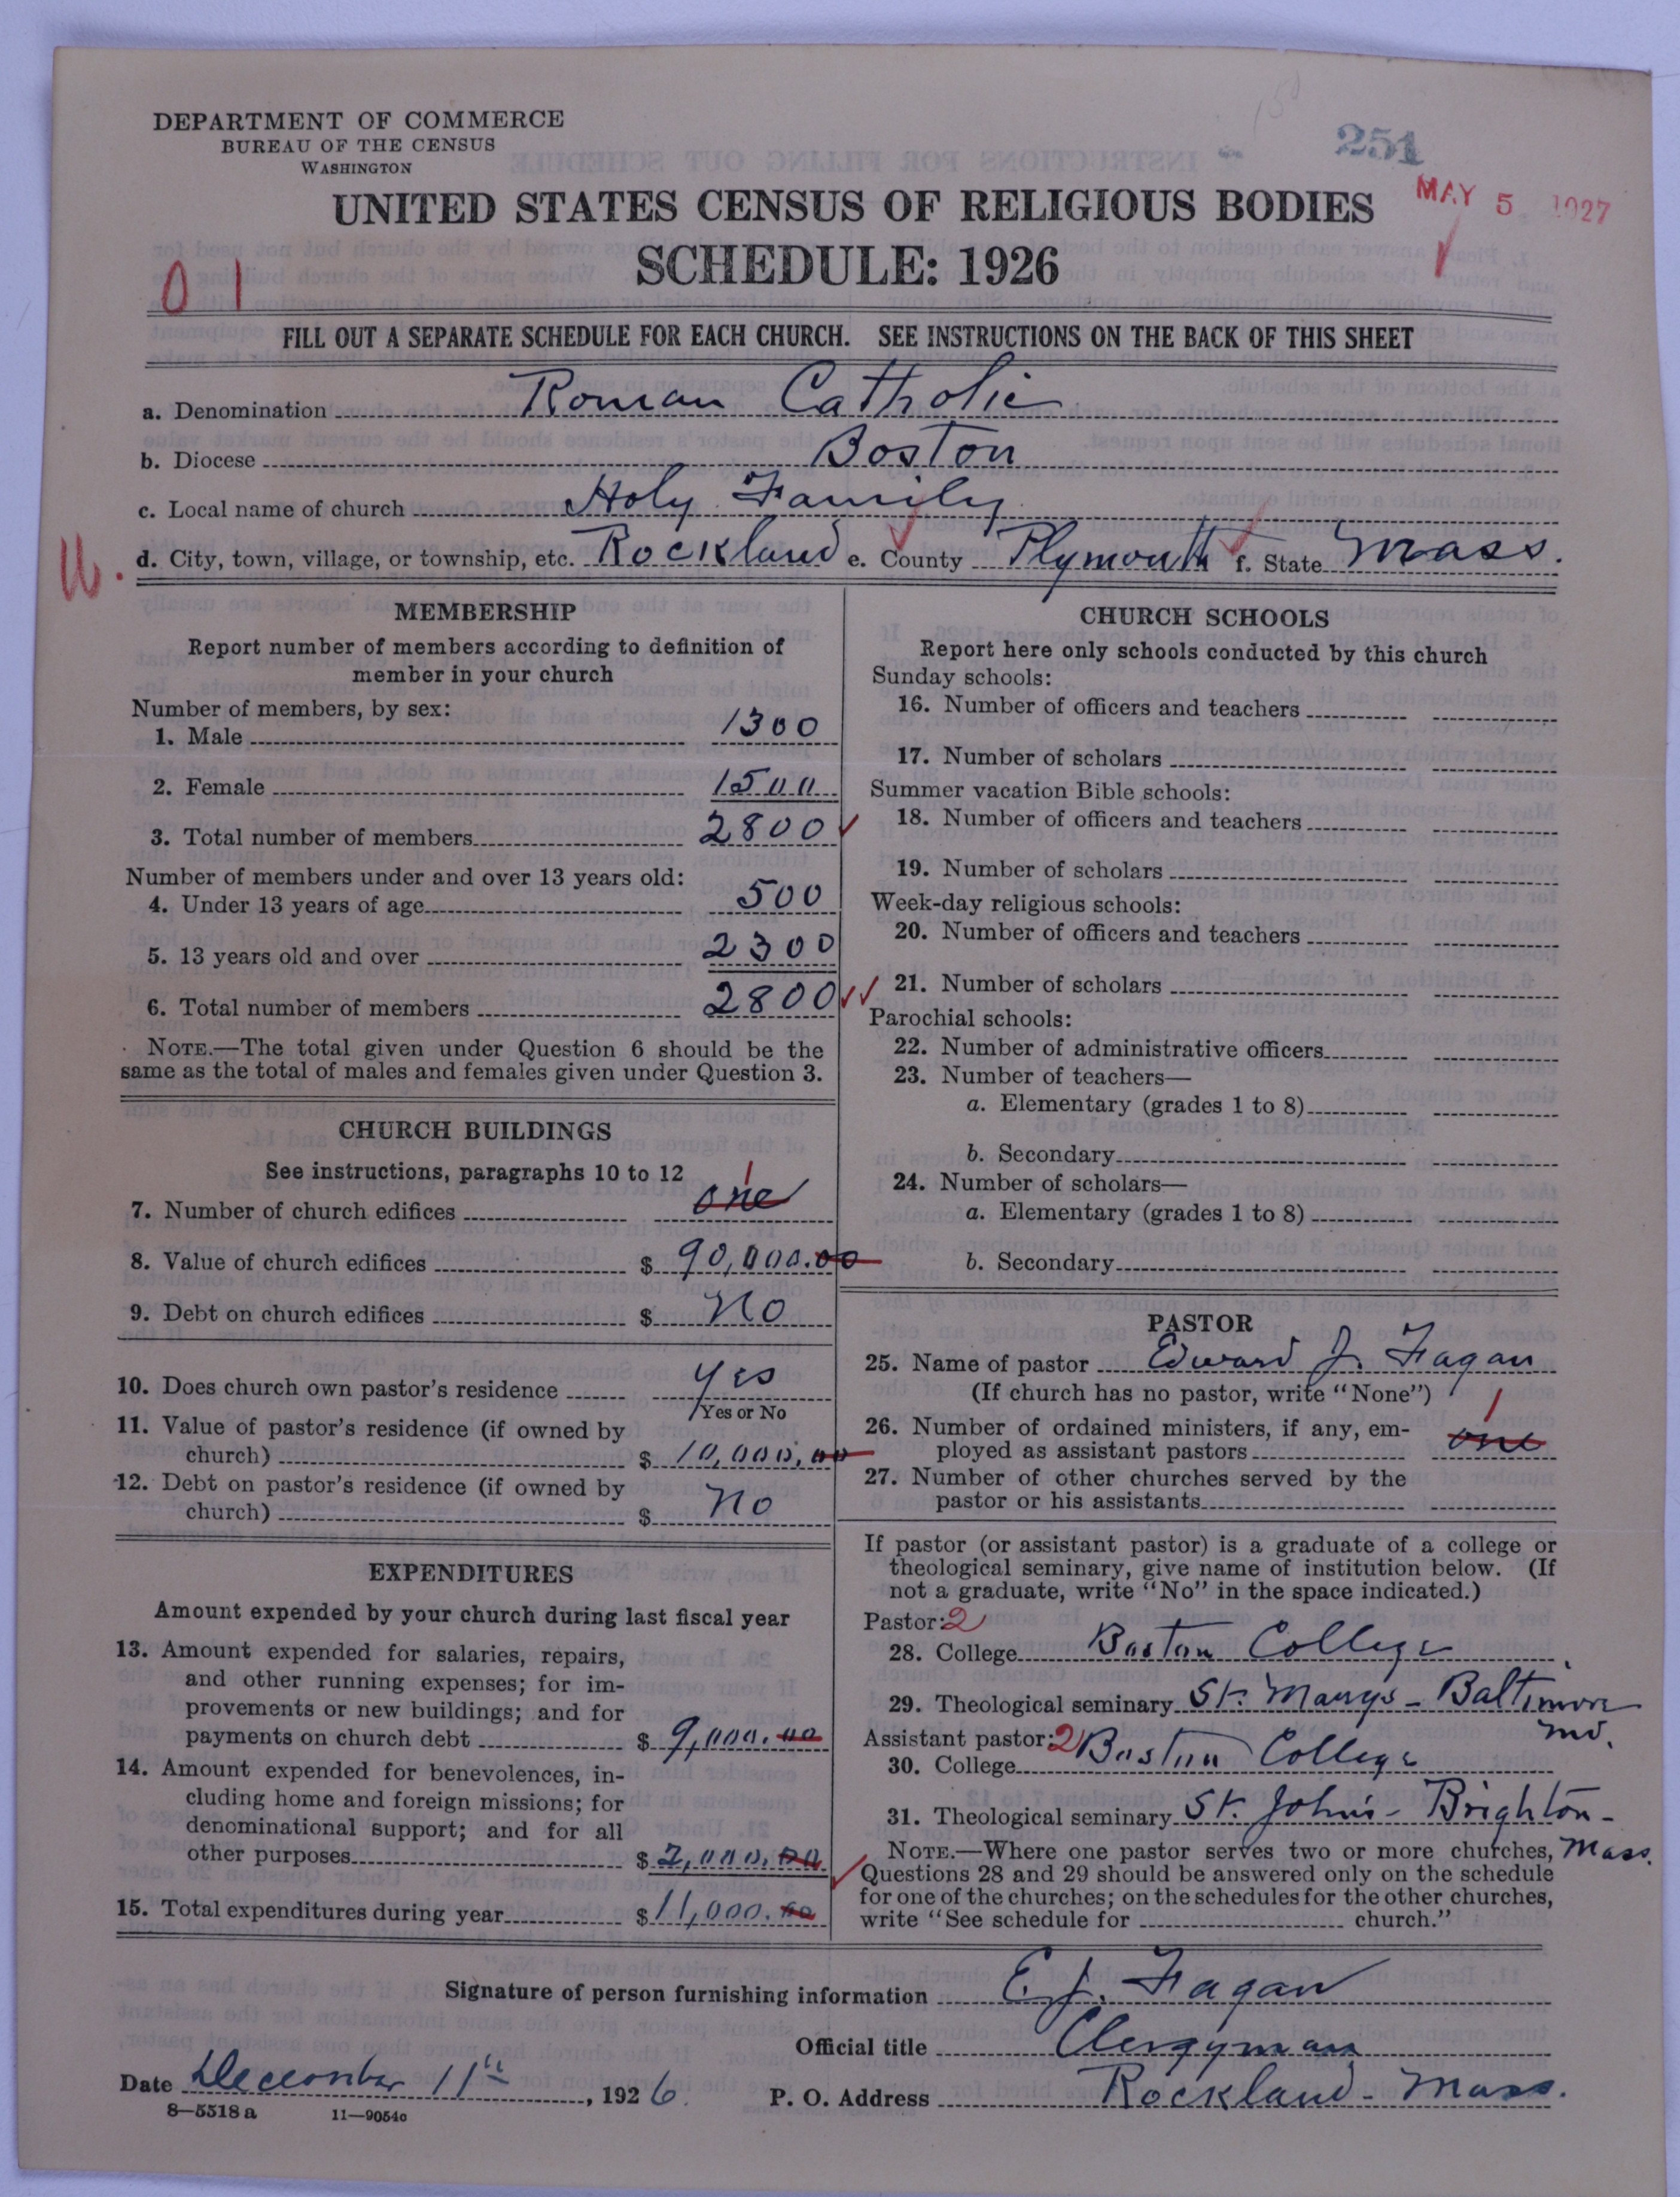 DEPARTMENT OF COMMERCE
BUREAU OF THE CENSUS
WASHINGTON
251
UNITED STATES CENSUS OF RELIGIOUS BODIES
MAY 5 1927
SCHEDULE: 1926
0 1
FILL OUT A SEPARATE SCHEDULE FOR EACH CHURCH. SEE INSTRUCTIONS ON THE BACK OF THIS SHEET
a. Denomination Roman Catholic
b. Diocese Boston
c. Local name of church Holy Family
d. City, town, village, or township, etc. Rockland e. County Plymouth f. State Mass.
MEMBERSHIP
Report number of members according to definition of
member in your church
Number of members, by sex:
1. Male 1300
2. Female 1500
3. Total number of members 2800
Number of members under and over 13 years old:
4. Under 13 years of age 500
5. 13 years old and over 2300
6. Total number of members 2800
NOTE.—The total given under Question 6 should be the
same as the total of males and females given under Question 3.
CHURCH BUILDINGS
See instructions, paragraphs 10 to 12
1
7. Number of church edifices one
8. Value of church edifices $ 90,000.00
9. Debt on church edifices $ No
10. Does church own pastor's residence Yes
Yes or No
11. Value of pastor's residence (if owned by
church) $ 10,000.00
12. Debt on pastor's residence (if owned by
church) $ No
EXPENDITURES
Amount expended by your church during last fiscal year
13. Amount expended for salaries, repairs,
and other running expenses; for im-
provements or new buildings; and for
payments on church debt $ 9,000.00
14. Amount expended for benevolences, in-
cluding home and foreign missions; for
denominational support; and for all
other purposes $ 2,000.00
15. Total expenditures during year $ 11,000.00
CHURCH SCHOOLS
Report here only schools conducted by this church
Sunday schools:
16. Number of officers and teachers
17. Number of scholars
Summer vacation Bible schools:
18. Number of officers and teachers
19. Number of scholars
Week-day religious schools:
20. Number of officers and teachers
21. Number of scholars
Parochial schools:
22. Number of administrative officers
23. Number of teachers—
a. Elementary (grades 1 to 8)
b. Secondary
24. Number of scholars—
a. Elementary (grades 1 to 8)
b. Secondary
PASTOR
25. Name of pastor Edward J. Fagan
(If church has no pastor, write "None")
1
26. Number of ordained ministers, if any, em-
ployed as assistant pastors one
27. Number of other churches served by the
pastor or his assistants
If pastor (or assistant pastor) is a graduate of a college or
theological seminary, give name of institution below. (If
not a graduate, write "No" in the space indicated.)
Pastor: 2
28. College Boston College
29. Theological seminary St. Marys - Baltimore
Md.
Assistant pastor: 2
30. College Boston College
31. Theological seminary St. John's - Brighton -
Mass.
NOTE.—Where one pastor serves two or more churches,
Questions 28 and 29 should be answered only on the schedule
for one of the churches; on the schedules for the other churches,
write "See schedule for church."
Signature of person furnishing information E. J. Fagan
Official title Clergyman
Date December 11th, 1926. P. O. Address Rockland - Mass.
8—5518 a 11—9054c